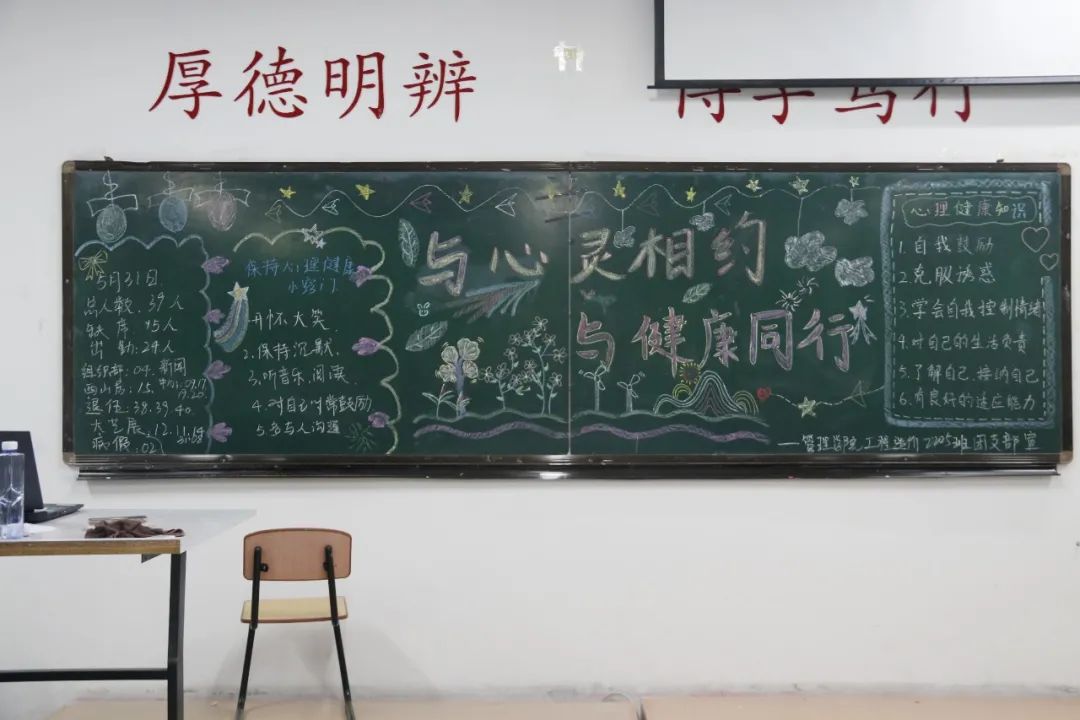 厚德明辨
笃行
5月31日
总人数:39人
缺席:15人
出勤:24人
组织部:04.新闻
退伍:38.39.40
病假:02
保持心理健康
小窍门
1.开怀大笑.
2.保持沉默.
3.听音乐,阅读.
4.对自己时常鼓励
5.多与人沟通
与心灵相约
与健康同行
心理健康知识
1.自我鼓励
2.克服诱惑
3.学会自我控制情绪
4.对自己的生活负责
5.了解自己.接纳自己
6.有良好的适应能力
——管理学院工程造价2205班团支部宣